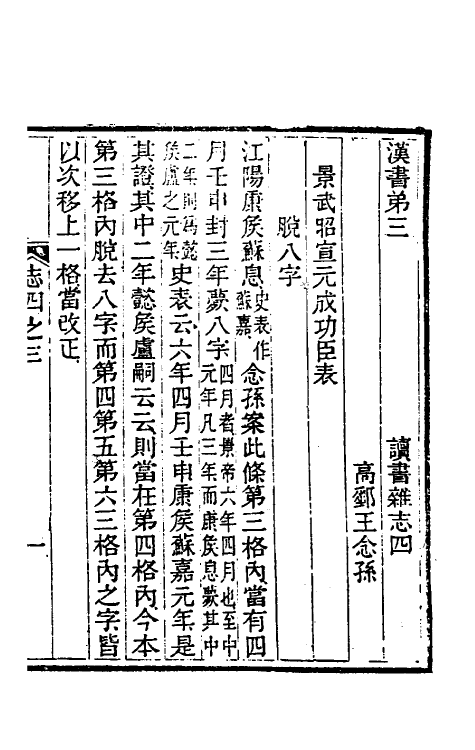 漢書弟三　讀書雜志四
高郵王念孫
景武昭宣元成功臣表
脫八字
江陽康矦蘇息史表作蘇嘉念孫案此條第三格內當有四
月壬申封三年薨八字四月者景帝六年四月也至中元年凡三年而康矦息薨其中
二年則爲懿矦盧之元年史表云六年四月壬申康矦蘇嘉元年是
其證其中二年懿矦盧嗣云云則當在第四格內今本
第三格內脫去八字而第四第五第六三格內之字皆
以次移上一格當改正
志四之三　一